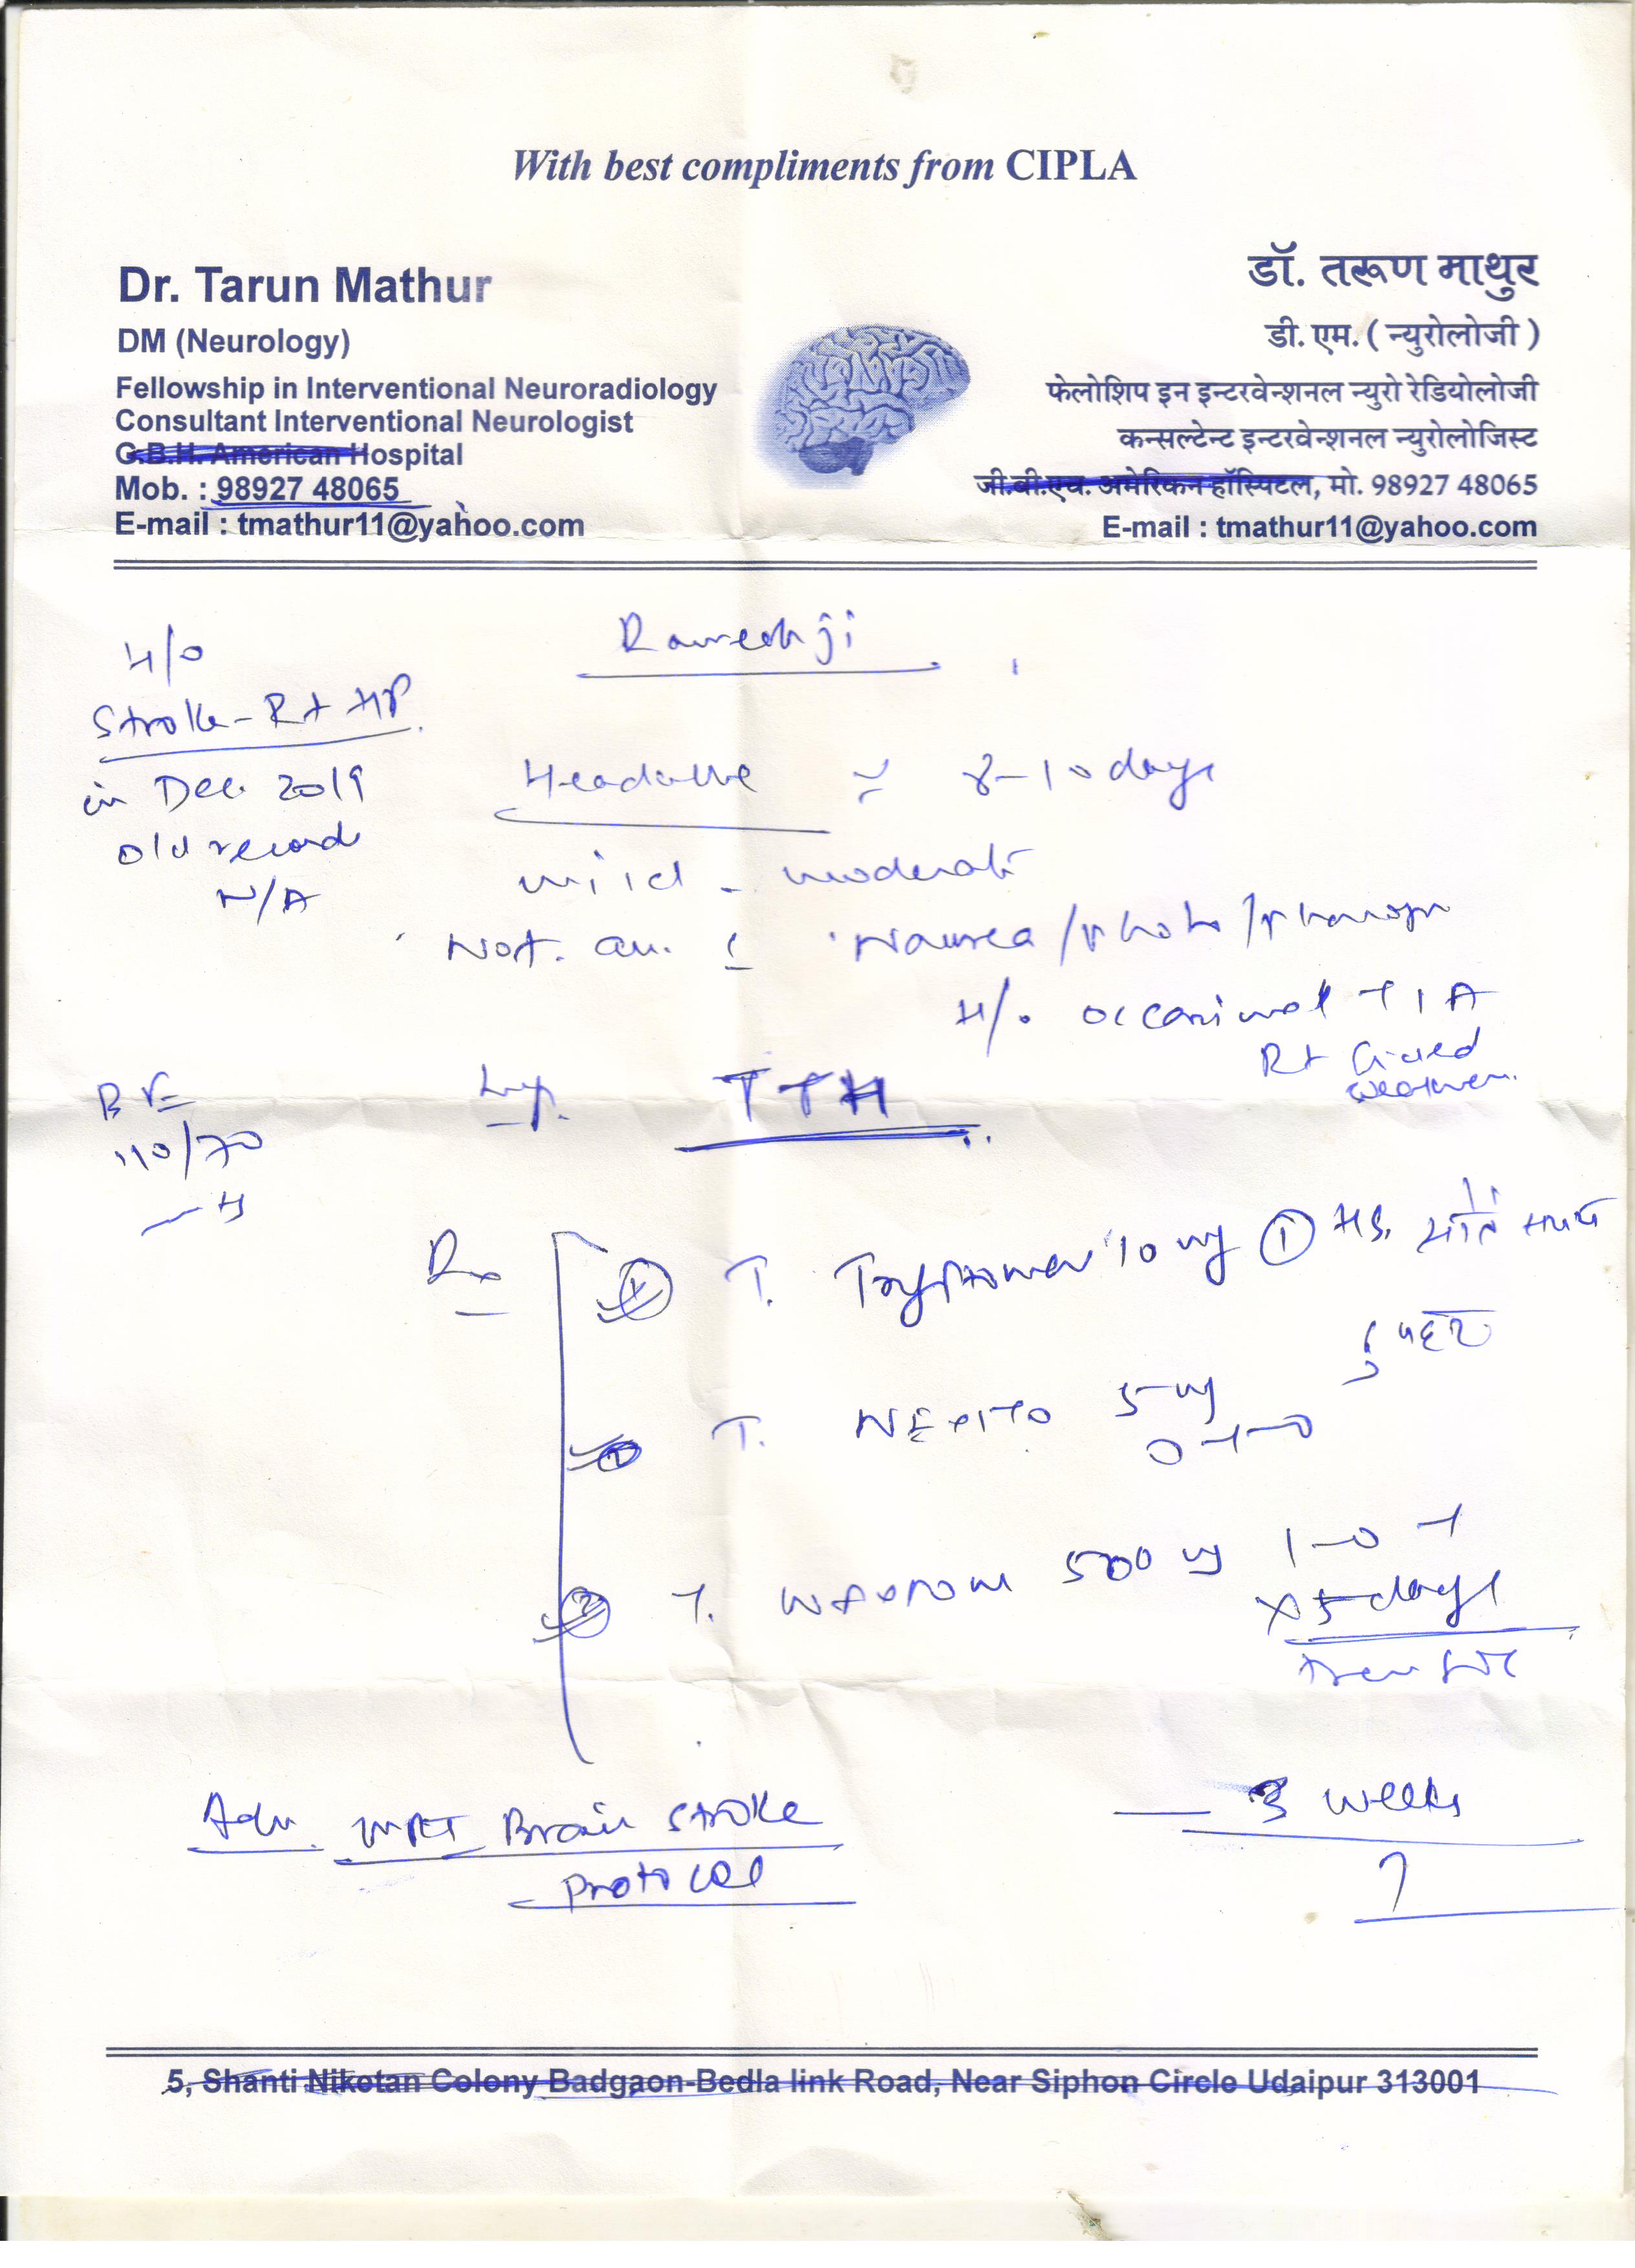 With best compliments from CIPLA
Dr. Tarun Mathur
DM (Neurology)
Fellowship in Interventional Neuroradiology
Consultant Interventional Neurologist
G.B.H. American Hospital
Mob. : 98927 48065
E-mail : tmathur11@yahoo.com
डॉ. तरूण माथुर
डी. एम. ( न्युरोलोजी )
फेलोशिप इन इन्टरवेन्शनल न्युरो रेडियोलोजी
कन्सल्टेन्ट इन्टरवेन्शनल न्युरोलोजिस्ट
जी.बी.एच. अमेरिकन हॉस्पिटल, मो. 98927 48065
E-mail : tmathur11@yahoo.com
Rameshji
H/O
Stroke - Rt HP
in Dec 2019
old record
N/A
Headache 8-10 days
mild - moderate
Not. Nausea / photo / phonoph
H/o occasional TIA
Rt sided
weakness
Imp. TTH
BP =
110/70
Rx
① T. Tryptomer 10 mg ① HS. सोते समय
T. NEXITO 5 mg दुपहर
0-1-0
T. NAXDOM 500 mg 1-0-1
x 5 days
then SOS
Adv. MRI Brain Stroke
Protocol
3 weeks
5, Shanti Niketan Colony Badgaon-Bedla link Road, Near Siphon Circle Udaipur 313001